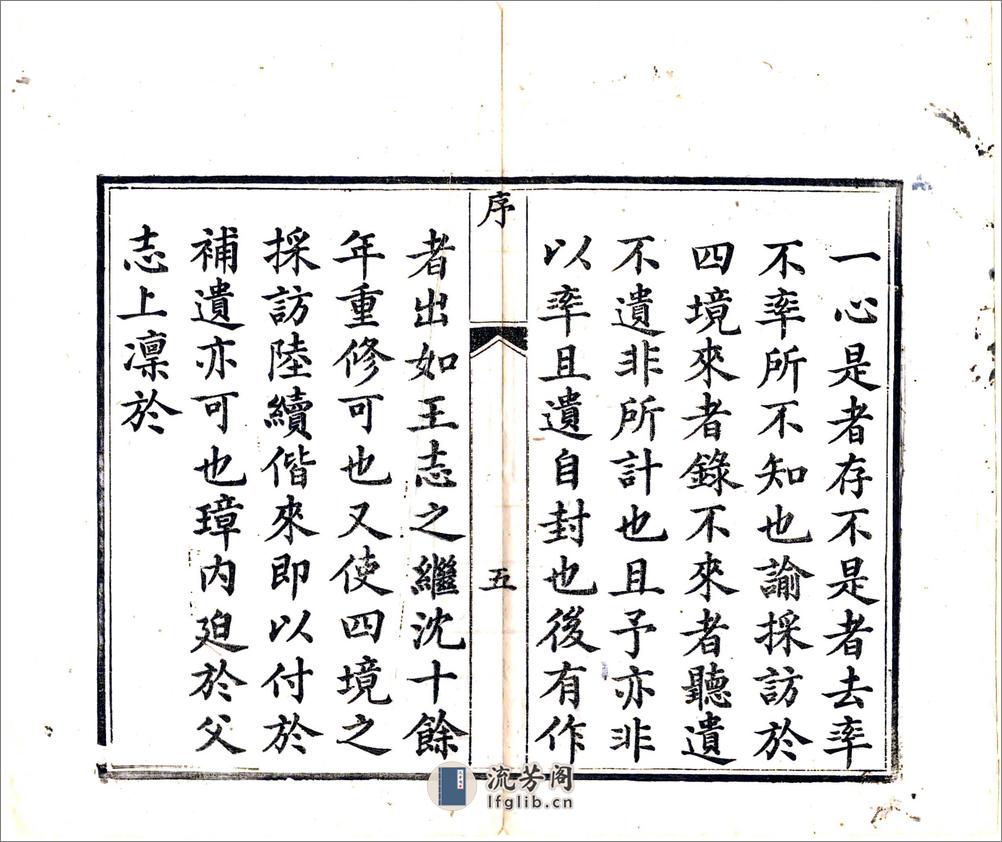 一心是者存不是者去率
不率所不知也諭採訪於
四境來者錄不來者聽遺
不遺非所計也且予亦非
以率且遺自封也後有作
序
五
者出如王志之繼沈十餘
年重修可也又使四境之
採訪陸續偕來即以付於
補遺亦可也璋内廹於父
志上凛於
流芳阁
lfglib.cn